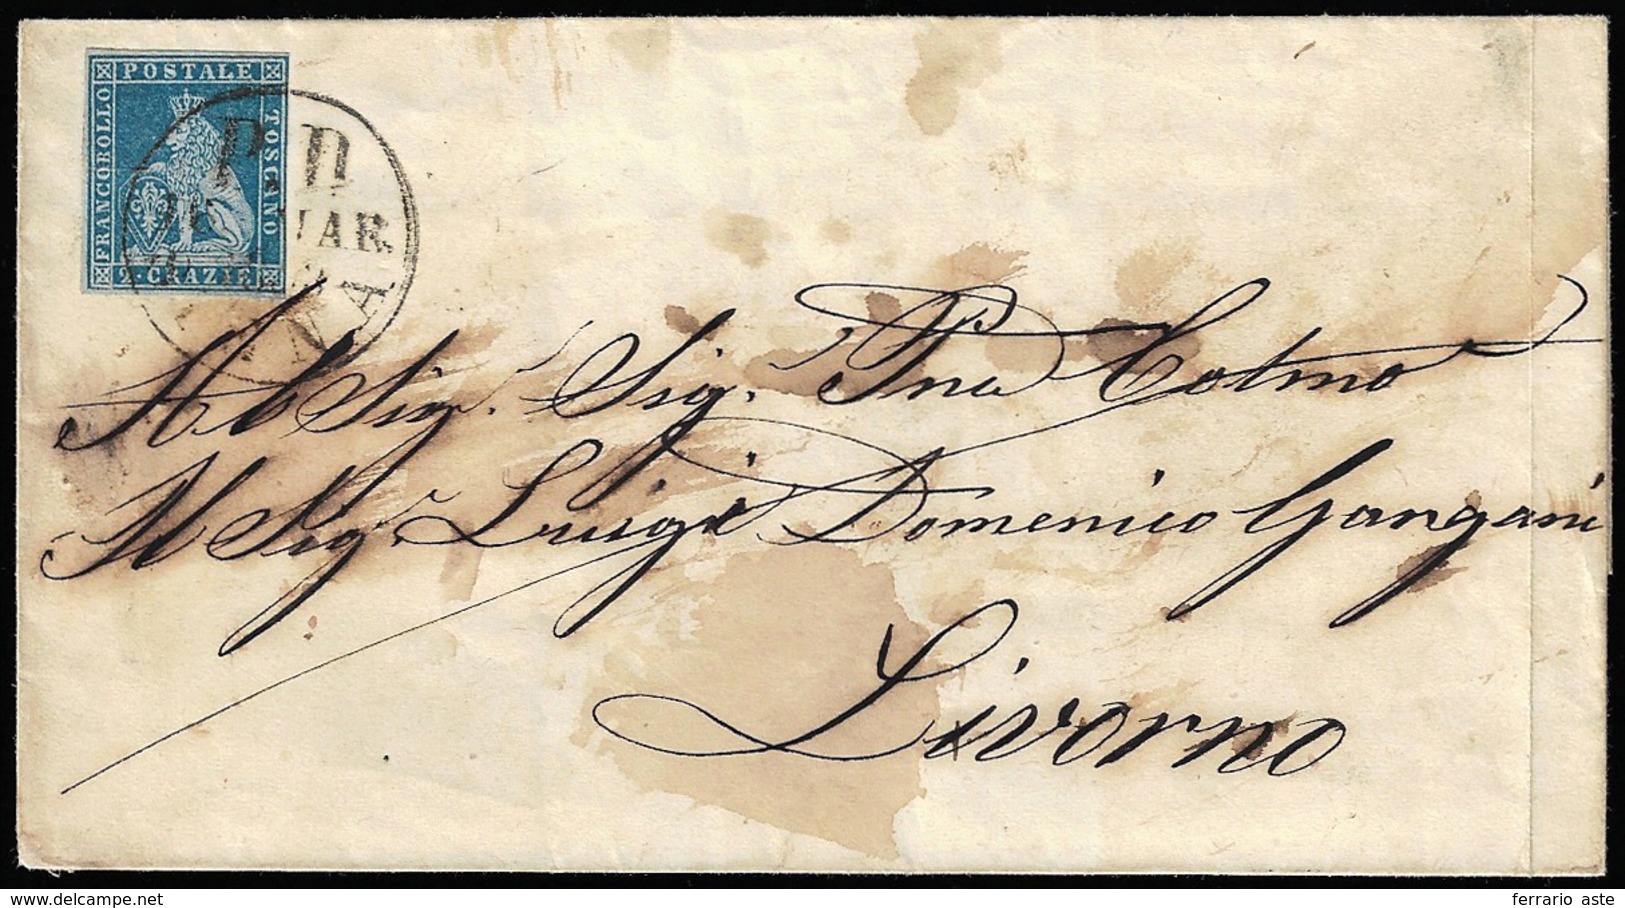 POSTALE
FRANCOBOLLO
TOSCANO
2. CRAZIE
P. D
MAR
All Sig. Sig. Pne Colmo
Sig. Luigi Domenico Gangani
Livorno
© delcampe.net
ferrario aste